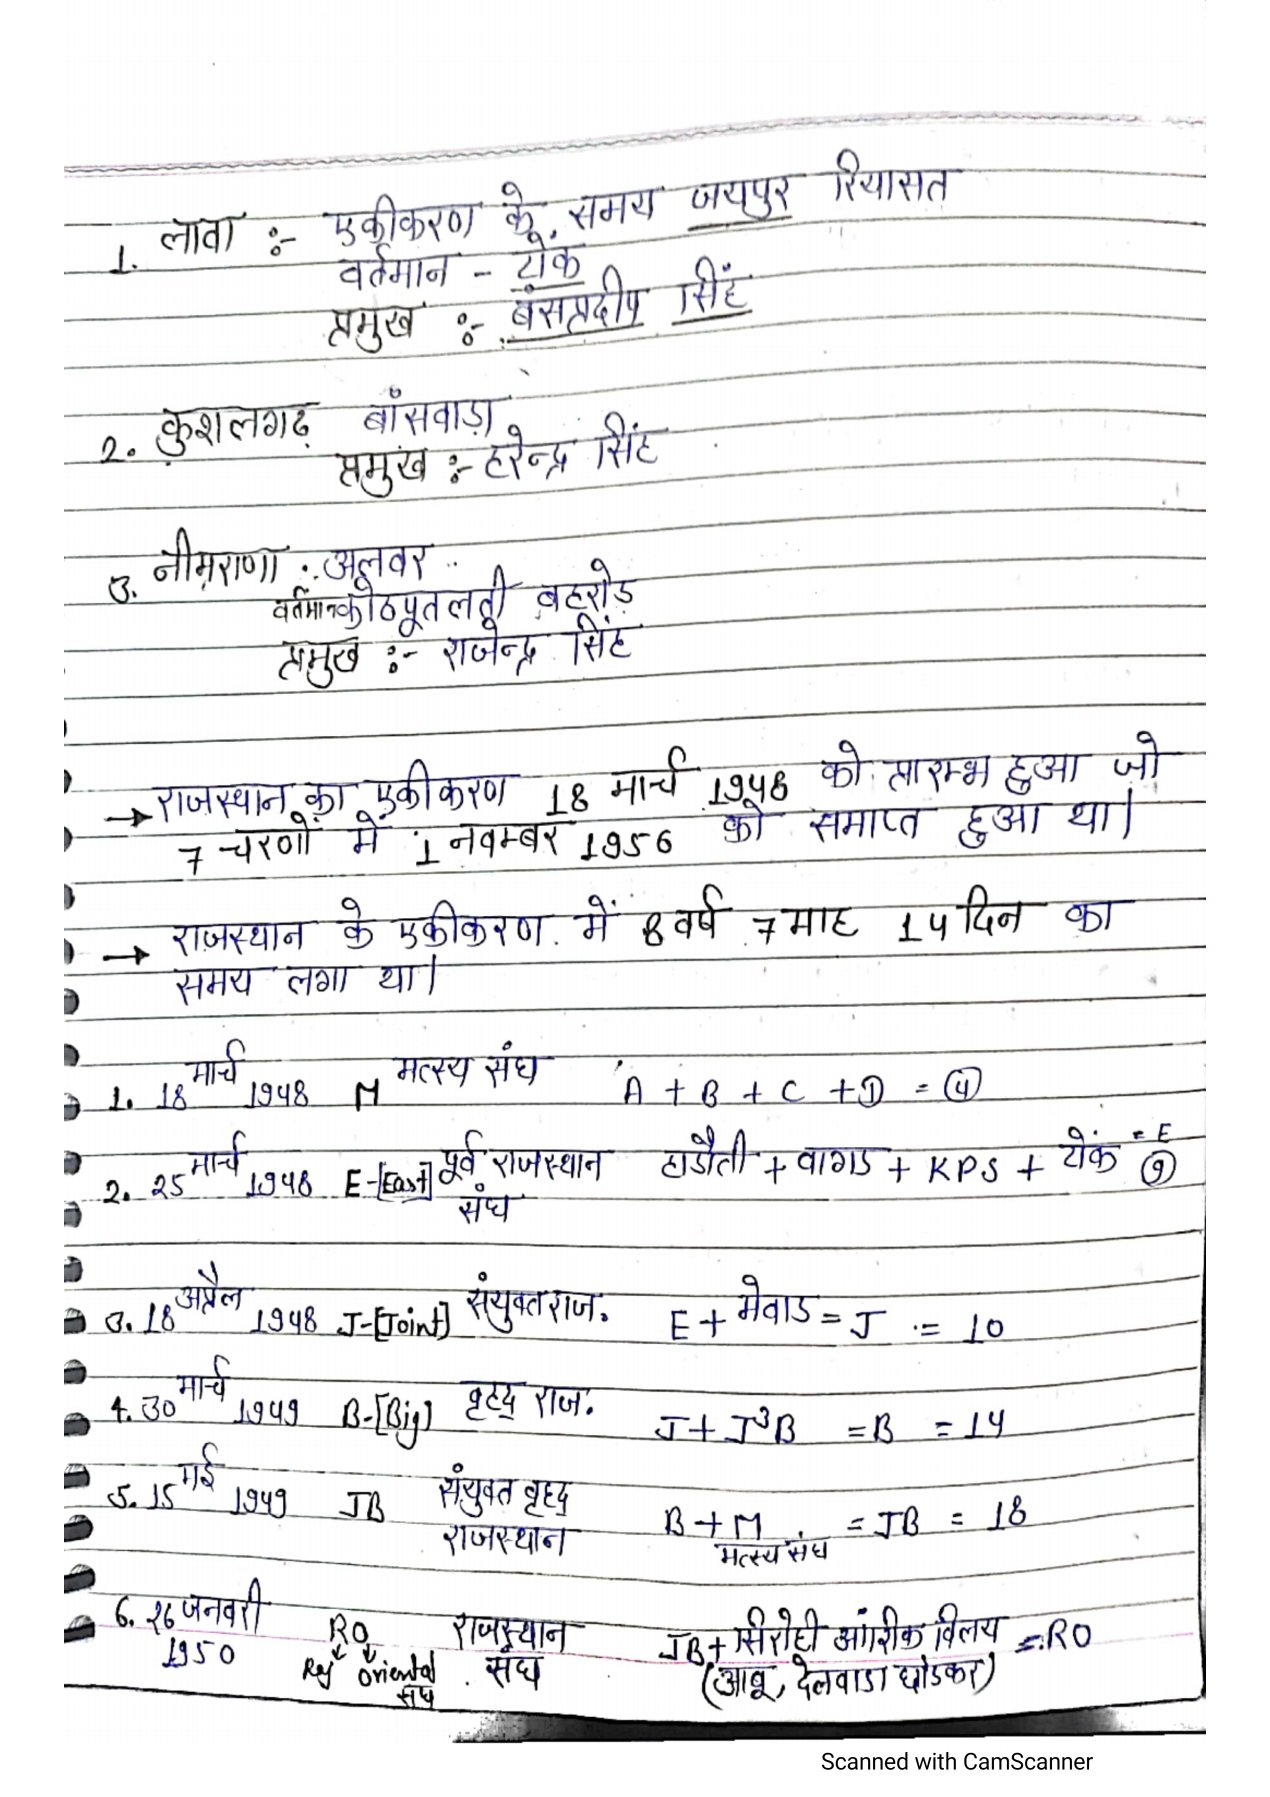 1. लावा :- एकीकरण के समय जयपुर रियासत
वर्तमान - टोंक
प्रमुख :- बंसप्रदीप सिंह
2. कुशलगढ़ बाँसवाड़ा
प्रमुख :- हरेन्द्र सिंह
3. नीमराणा . अलवर
वर्तमान कोठपूतलती बहरोड़
प्रमुख :- राजेन्द्र सिंह
→ राजस्थान का एकीकरण 18 मार्च 1948 को प्रारम्भ हुआ जो
7 चरणों में 1 नवम्बर 1956 को समाप्त हुआ था।
→ राजस्थान के एकीकरण में 8 वर्ष 7 माह 14 दिन का
समय लगा था।
1. 18 मार्च 1948 M मत्स्य संघ A + B + C + D = (4)
2. 25 मार्च 1948 E-[East] पूर्व राजस्थान संघ हाडौती + वागड + KPS + टोंक = E (9)
3. 18 अप्रैल 1948 J-[Joint] संयुक्त राज. E + मेवाड = J = 10
4. 30 मार्च 1949 B-[Big] वृहद् राज. J + J³B = B = 14
5. 15 मई 1949 JB संयुक्त वृहद् राजस्थान B + M = JB = 18
मत्स्य संघ
6. 26 जनवरी 1950 RO राजस्थान संघ JB + सिरोही आंशरीक विलय = RO
Rej Oriental संघ (आबू, देलवाडा छोडकर)
Scanned with CamScanner